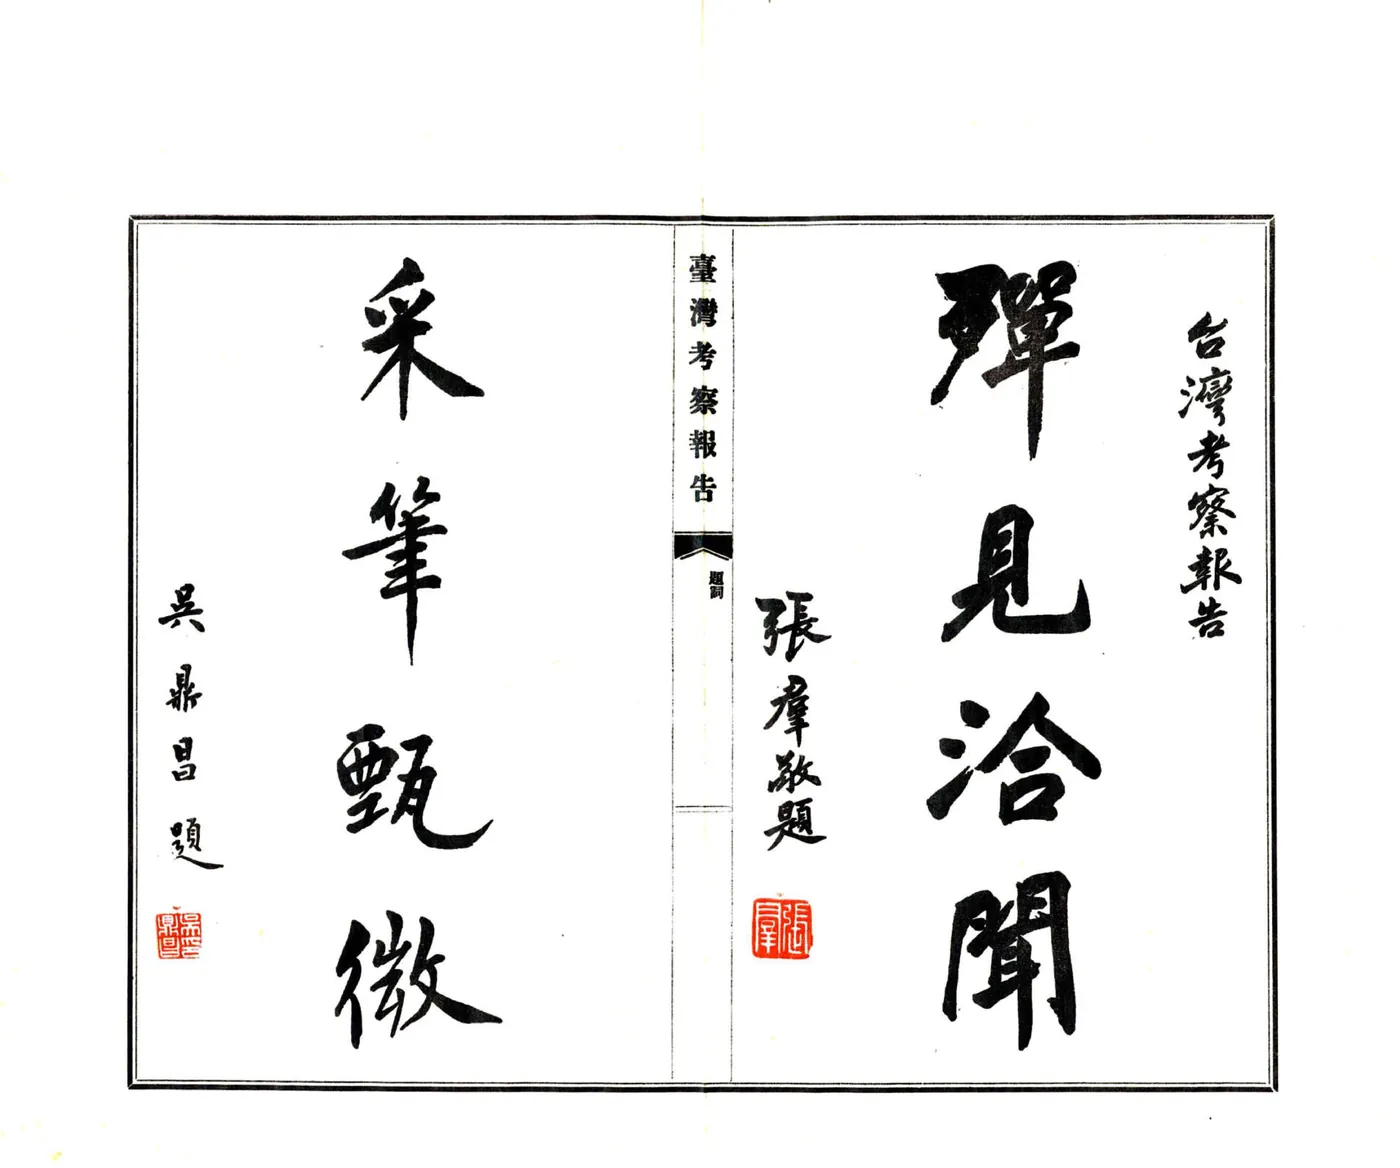 台灣考察報告
殫見洽聞
張羣敬題
張羣
臺灣考察報告
題詞
采筆甄微
吳鼎昌題
吳鼎昌印